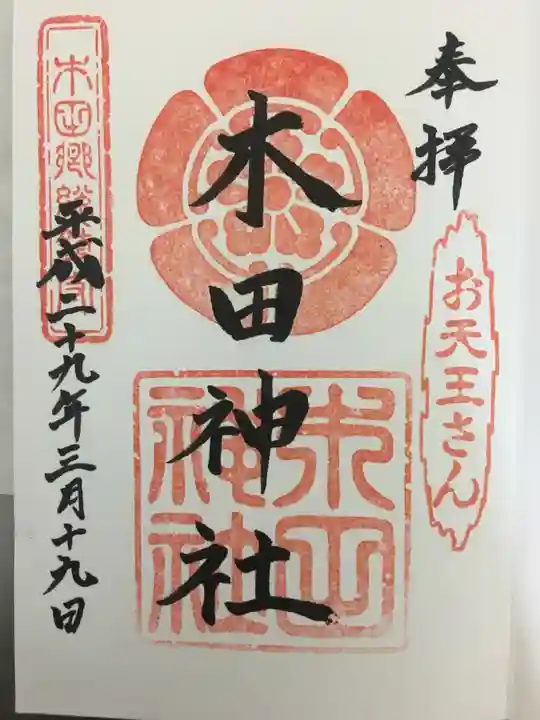 奉拝
お天王さん
木田神社
木田神社
木田郷総
平成二十九年三月十九日